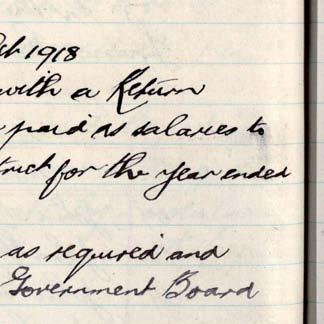 1918
with a Return
paid as salaries to
for the year ended
as required and
Government Board